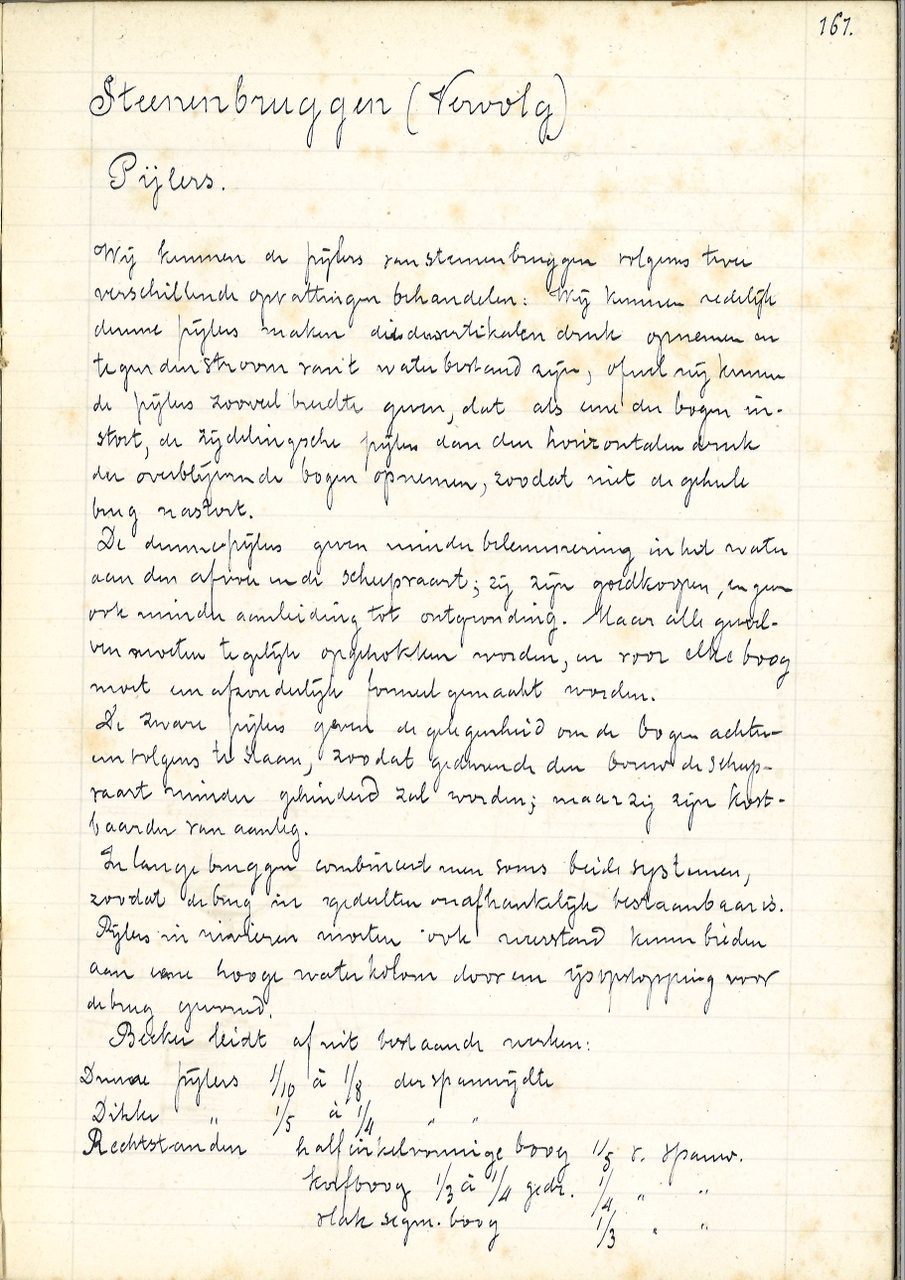 161.
Steenenbruggen (Vervolg)
Pijlers.
Wij kunnen de pijlers van steenenbruggen volgens twee
verschillende opvattingen behandelen: Wij kunnen redelijk
dunne pijlers maken die den vertikalen druk opnemen en
tegen den stroom van 't water bestand zijn, ofwel wij kunnen
de pijlers zooveel breedte geven, dat als eene der bogen in-
stort, de zijdelingsche pijlers dan den horizontalen druk
der overblijvende bogen opnemen, zoodat niet de geheele
brug instort.
De dunne pijlers geven minder belemmering in het water
aan den afvoer en de scheepvaart; zij zijn goedkooper, en geven
ook minder aanleiding tot ontgronding. Maar alle gewel-
ven moeten tegelijk opgetrokken worden, en voor elke boog
moet een afzonderlijk formeel gemaakt worden.
De zware pijlers geven de gelegenheid om de bogen achter-
eenvolgens te slaan, zoodat gedurende den bouw de scheep-
vaart minder gehinderd zal worden; maar zij zijn kost-
baarder van aanleg.
In lange bruggen combineerd men soms beide systemen,
zoodat de brug in gedeelten onafhankelijk bestaanbaar is.
Pijlers in rivieren moeten ook weerstand kunnen bieden
aan eene hooge waterkolom door een ijsopstopping voor
de brug gevormd.
Becker leidt af uit bestaande werken:
Dunne pijlers 1/10 à 1/8 der spanwijdte
Dikke " 1/5 à 1/4 " "
Rechtstanden halfcirkelvormige boog 1/5 v. spanw.
korfboog 1/3 à 1/4 gedr. 1/4 " "
vlak segm. boog 1/3 " "